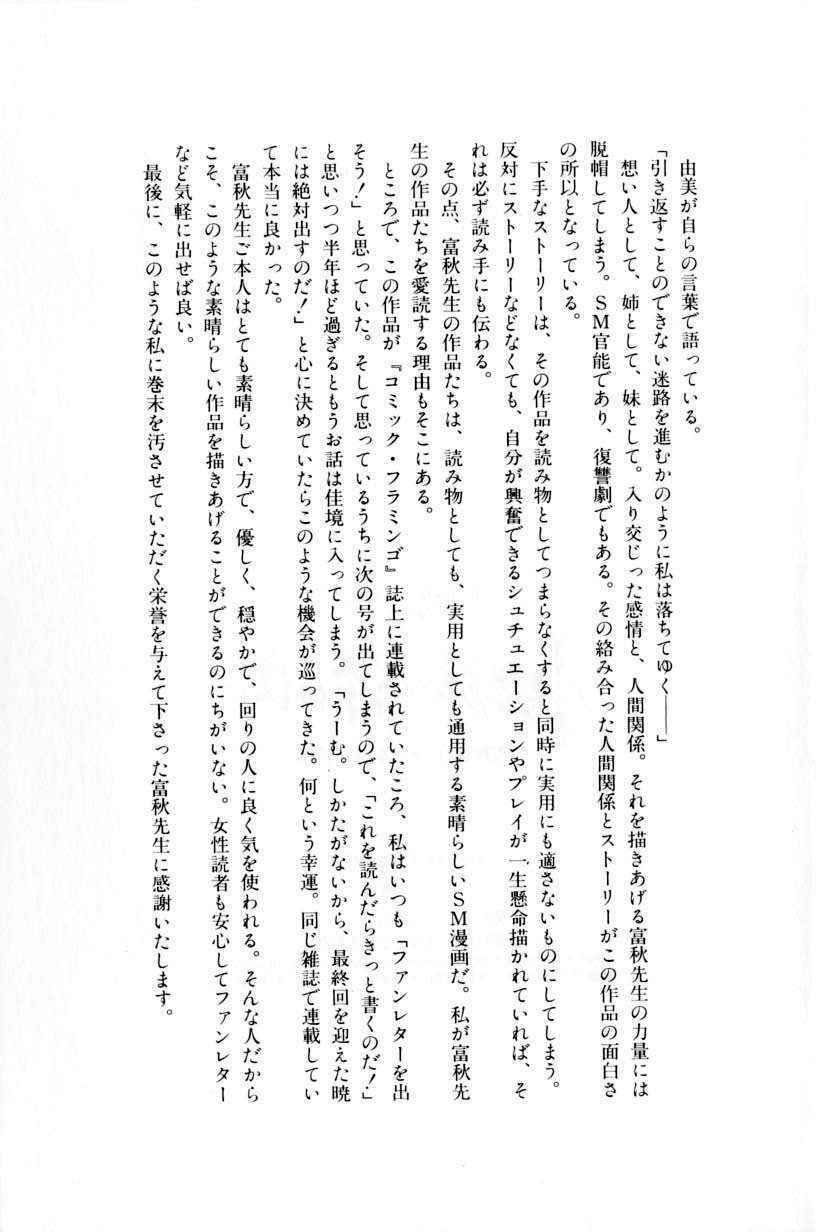 由美が自らの言葉で語っている。
「引き返すことのできない迷路を進むかのように私は落ちてゆく――」
想い人として、姉として、妹として。入り交じった感情と、人間関係。それを描きあげる富秋先生の力量には
脱帽してしまう。ＳＭ官能であり、復讐劇でもある。その絡み合った人間関係とストーリーがこの作品の面白さ
の所以となっている。
下手なストーリーは、その作品を読み物としてつまらなくすると同時に実用にも適さないものにしてしまう。
反対にストーリーなどなくても、自分が興奮できるシュチュエーションやプレイが一生懸命描かれていれば、そ
れは必ず読み手にも伝わる。
その点、富秋先生の作品たちは、読み物としても、実用としても通用する素晴らしいＳＭ漫画だ。私が富秋先
生の作品たちを愛読する理由もそこにある。
ところで、この作品が『コミック・フラミンゴ』誌上に連載されていたころ、私はいつも「ファンレターを出
そう！」と思っていた。そして思っているうちに次の号が出てしまうので、「これを読んだらきっと書くのだ！」
と思いつつ半年ほど過ぎるともうお話は佳境に入ってしまう。「うーむ。しかたがないから、最終回を迎えた暁
には絶対出すのだ！」と心に決めていたらこのような機会が巡ってきた。何という幸運。同じ雑誌で連載してい
て本当に良かった。
富秋先生ご本人はとても素晴らしい方で、優しく、穏やかで、回りの人に良く気を使われる。そんな人だから
こそ、このような素晴らしい作品を描きあげることができるのにちがいない。女性読者も安心してファンレター
など気軽に出せば良い。
最後に、このような私に巻末を汚させていただく栄誉を与えて下さった富秋先生に感謝いたします。